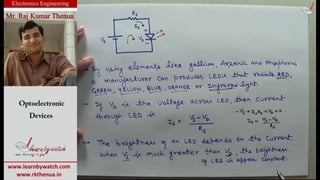 Electronics Engineering
Mr. Raj Kumar Thenua
Optoelectronic
Devices
Learnbywatch
www.learnbywatch.com
www.rkthenua.in
Rs
Is
Vs
VD
→ By using elements like gallium, Arsenic and Phosphorus
a manufacturer can produces LEDs that radiate RED,
GREEN, YELLOW, BLUE, ORANGE or Infrared light.
→ If VD is the Voltage across LED, then current
through LED is
Is = Vs - VD / Rs
-Vs + IsRs + VD = 0
Is = Vs - VD / Rs
→ The brightness of an LED depends on the current.
when Vs is much greater than VD, the brightness
of LED is approx constant.